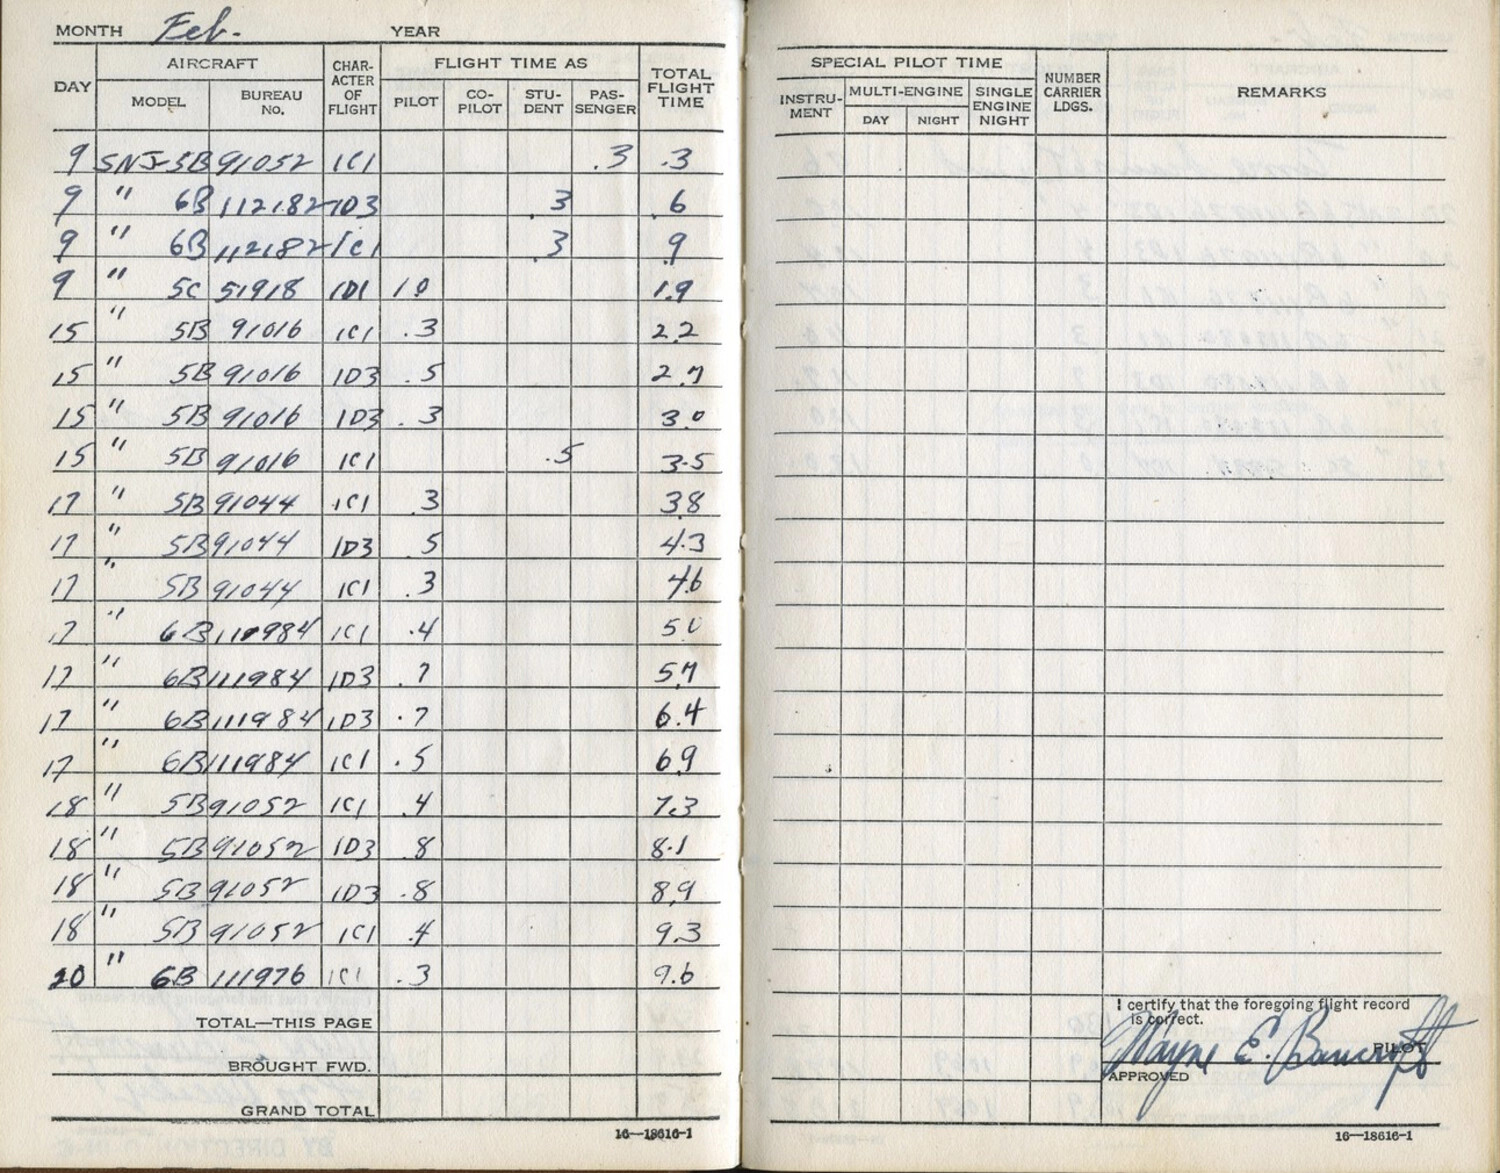 MONTH Feb. YEAR
DAY AIRCRAFT CHAR-ACTER OF FLIGHT FLIGHT TIME AS TOTAL FLIGHT TIME
MODEL BUREAU NO. PILOT CO-PILOT STU-DENT PAS-SENGER
9 SNJ-5B 91052 1C1 .3 .3
9 " 6B 112182 1D3 .3 .6
9 " 6B 112182 1C1 .3 .9
9 " 5C 51918 1D1 1.0 1.9
15 " 5B 91016 1C1 .3 2.2
15 " 5B 91016 1D3 .5 2.7
15 " 5B 91016 1D3 .3 3.0
15 " 5B 91016 1C1 .5 3.5
17 " 5B 91044 1C1 .3 3.8
17 " 5B 91044 1D3 .5 4.3
17 " 5B 91044 1C1 .3 4.6
17 " 6B 111984 1C1 .4 5.0
17 " 6B 111984 1D3 .7 5.7
17 " 6B 111984 1D3 .7 6.4
17 " 6B 111984 1C1 .5 6.9
18 " 5B 91052 1C1 .4 7.3
18 " 5B 91052 1D3 .8 8.1
18 " 5B 91052 1D3 .8 8.9
18 " 5B 91052 1C1 .4 9.3
20 " 6B 111976 1C1 .3 9.6
TOTAL—THIS PAGE
BROUGHT FWD.
GRAND TOTAL
16—18616-1
SPECIAL PILOT TIME NUMBER CARRIER LDGS. REMARKS
INSTRU-MENT MULTI-ENGINE SINGLE ENGINE NIGHT
DAY NIGHT
I certify that the foregoing flight record
is correct.
Wayne E. Bancroft PILOT
APPROVED
16—18616-1